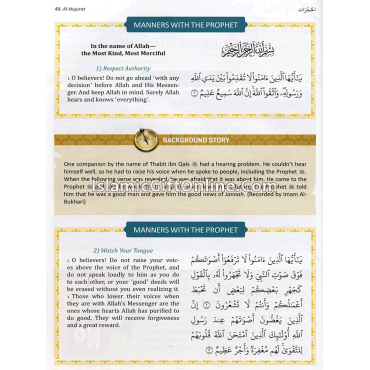 49. Al-Hujurat
الحجرات
MANNERS WITH THE PROPHET
In the name of Allah—
the Most Kind, Most Merciful
بِسْمِ اللَّهِ الرَّحْمَٰنِ الرَّحِيمِ
1) Respect Authority
1. O believers! Do not go ahead ˹with any
decision˺ before Allah and His Messen-
ger. And keep Allah in mind. Surely Allah
hears and knows ˹everything˺.
يَـٰٓأَيُّهَا ٱلَّذِينَ ءَامَنُوا۟ لَا تُقَدِّمُوا۟ بَيْنَ يَدَىِ ٱللَّهِ
وَرَسُولِهِۦ وَٱتَّقُوا۟ ٱللَّهَ إِنَّ ٱللَّهَ سَمِيعٌ عَلِيمٌ ١
BACKGROUND STORY
One companion by the name of Thabit ibn Qais ؓ had a hearing problem. He couldn't hear
himself well, so he had to raise his voice when he spoke to people, including the Prophet ﷺ.
When the following verse was revealed, he was afraid that it was about him. He came to the
Prophet
Prophet ﷺ told
him that he was a good man and gave him the good news of Jannah. {Recorded by Imam Al-
Bukhari}
IslamicGiftOnline.com
MANNERS WITH THE PROPHET
2) Watch Your Tongue
2. O believers! Do not raise your voic-
es above the voice of the Prophet, and
do not speak loudly to him as you do
to each other, or your ˹good˺ deeds will
be erased without you even realizing it.
3. Those who lower their voices when
they are with Allah's Messenger are the
ones whose hearts Allah has purified to
do good. They will receive forgiveness
and a great reward.
يَـٰٓأَيُّهَا ٱلَّذِينَ ءَامَنُوا۟ لَا تَرْفَعُوٓا۟ أَصْوَٰتَكُمْ
فَوْقَ صَوْتِ ٱلنَّبِىِّ وَلَا تَجْهَرُوا۟ لَهُۥ بِٱلْقَوْلِ
كَجَهْرِ بَعْضِكُمْ لِبَعْضٍ أَن تَحْبَطَ
أَعْمَـٰلُكُمْ وَأَنتُمْ لَا تَشْعُرُونَ ٢ إِنَّ
ٱلَّذِينَ يَغُضُّونَ أَصْوَٰتَهُمْ عِندَ رَسُولِ
ٱللَّهِ أُو۟لَـٰٓئِكَ ٱلَّذِينَ ٱمْتَحَنَ ٱللَّهُ قُلُوبَهُمْ
لِلتَّقْوَىٰ لَهُم مَّغْفِرَةٌ وَأَجْرٌ عَظِيمٌ ٣